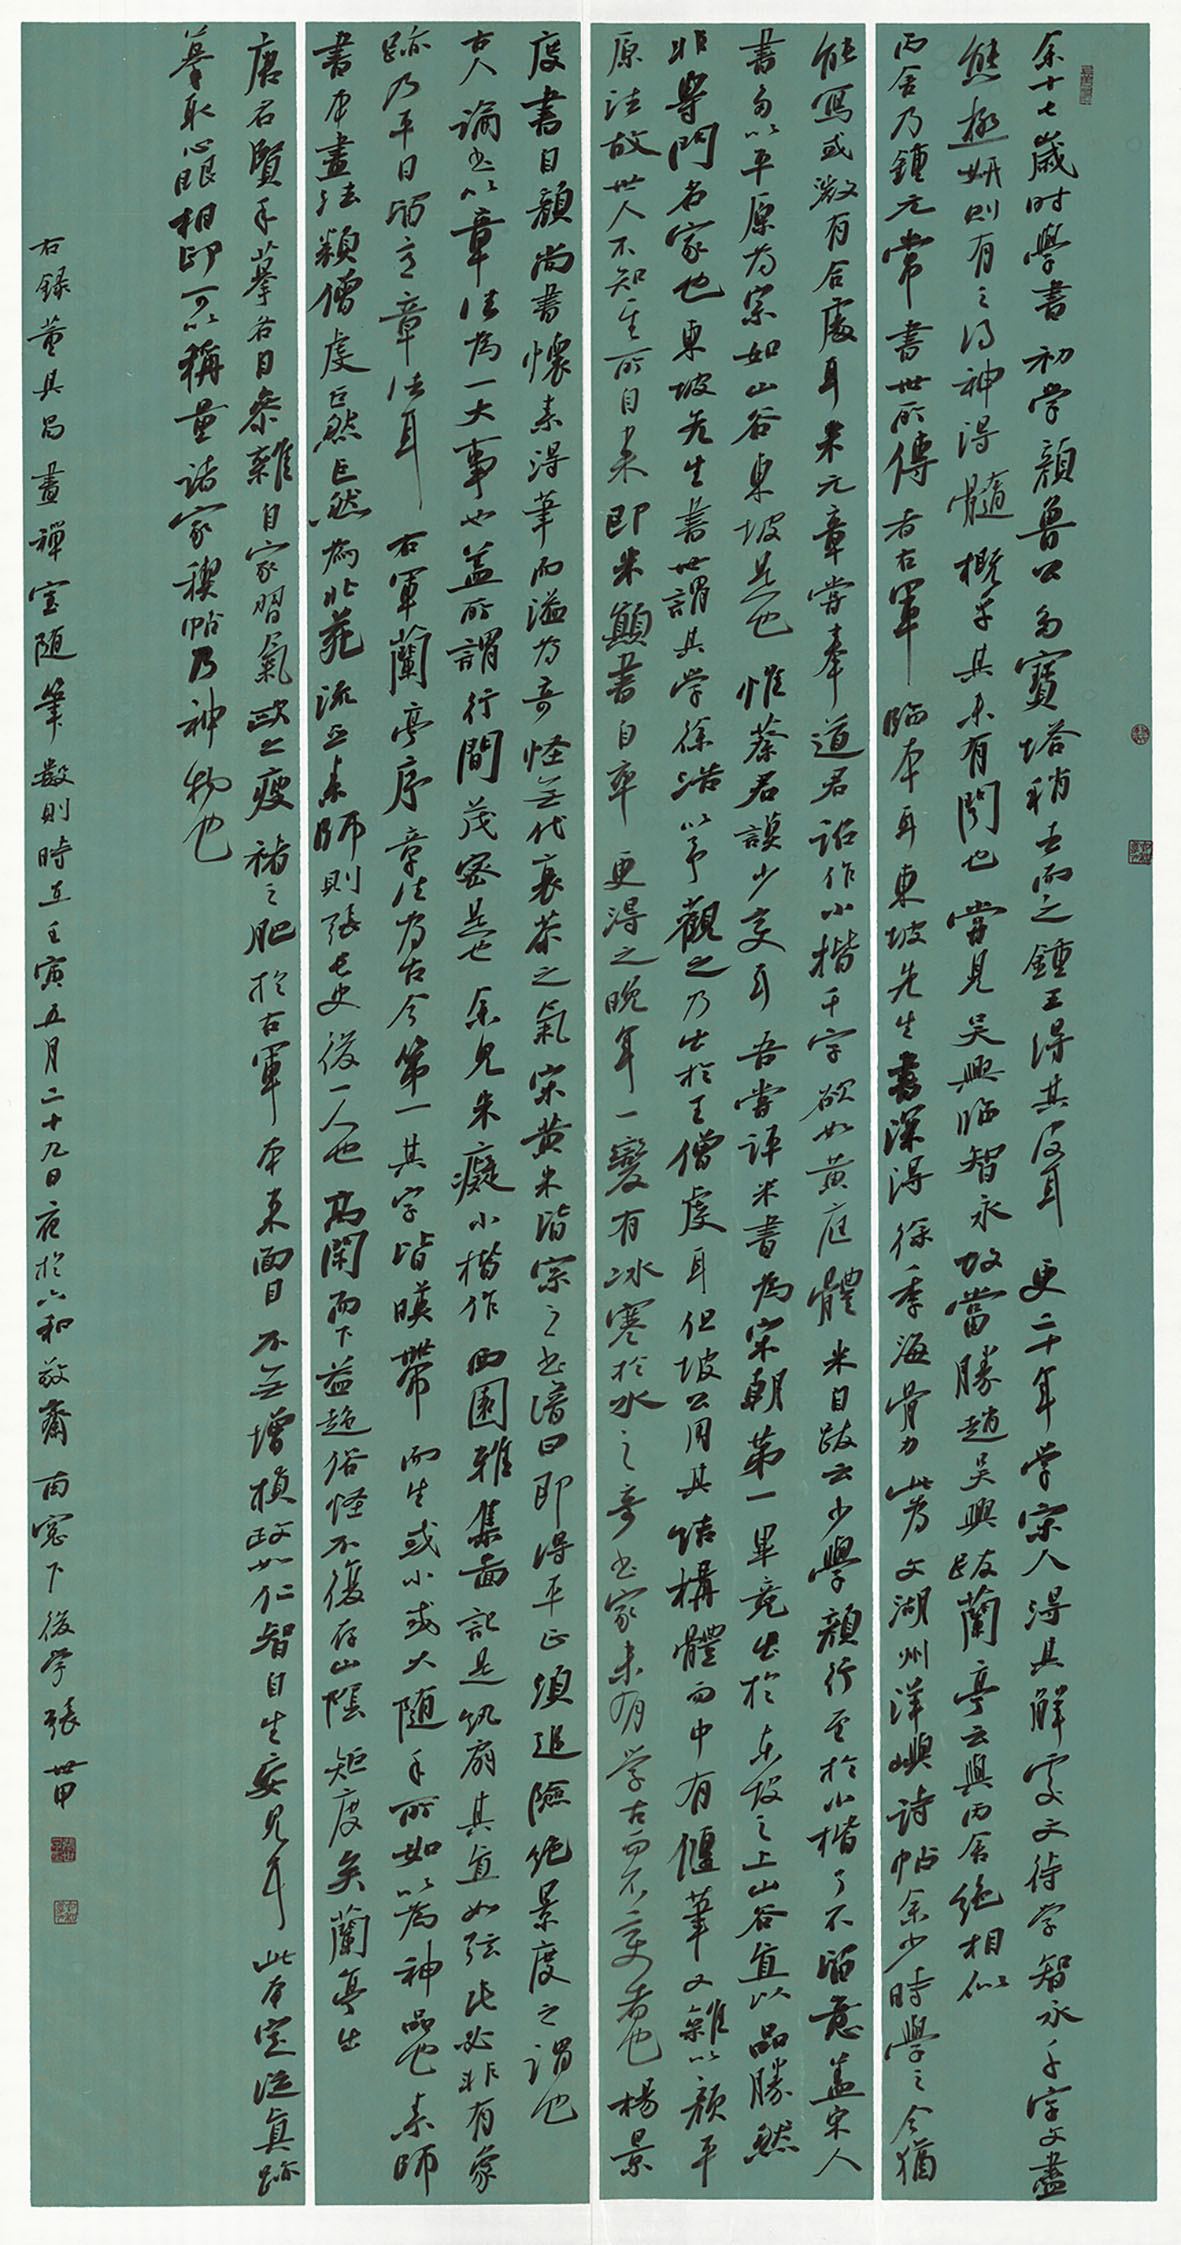 余十七歲时學書初学顏魯公多寳塔稍去而之鍾王得其皮耳更二十年学宋人得其解處文待学智永千字文盡
態極妍則有之得神得髓概乎其未有聞也嘗見吳興臨智永故當勝趙吳興跋蘭亭云與丙舍絶相似
丙舍乃鍾元常書世所傳者右軍臨本耳東坡先生書深得徐季海骨力此为文湖州洋嶼詩帖余少時學之今猶
能寫或微有合處耳米元章嘗奉道君詔作小楷千字欲如黄庭體米自跋云少學顏行至於小楷了不留意盖宋人
書多以平原为宗如山谷東坡是也惟蔡君謨少变耳吾嘗评米書為宋朝第一畢竟出於東坡之上山谷直以品勝然
非專門名家也東坡先生書世謂其学徐浩以予觀之乃出於王僧虔耳但坡公用其结構體而中有偃筆又雜以顏平
原法故世人不知其所自来即米顛書自率更得之晚年一變有冰寒於水之奇书家未有学古而不变者也楊景
度書自顏尚書懷素得筆而溢为奇怪無代衰苶之氣宋黄米皆宗之书譜曰即得平正須追險絶景度之謂也
古人論书以章法為一大事也盖所謂行間茂密是也余見米癡小楷作西園雅集圖記是纨扇其直如弦此必非有象
跡乃平日留意章法耳右軍蘭亭序章法为古今第一其字皆暎帶而生或小或大随手所如以為神品也素師
書本畫法類僧虔巨然巨然為北苑流亞素師則張長史後一人也高閑而下益趋俗怪不復存山陰矩度矣蘭亭出
唐名賢手摹各自参雜自家習氣歐之瘦褚之肥於右軍本来面目不無增損政如仁智自生妄見耳此本定從真跡
摹取心眼相印可以稱量诸家禊帖乃神物也
右録董其昌畫禪室随筆數則時在壬寅五月二十九日夜於六和敬齋南窓下後学張世甲